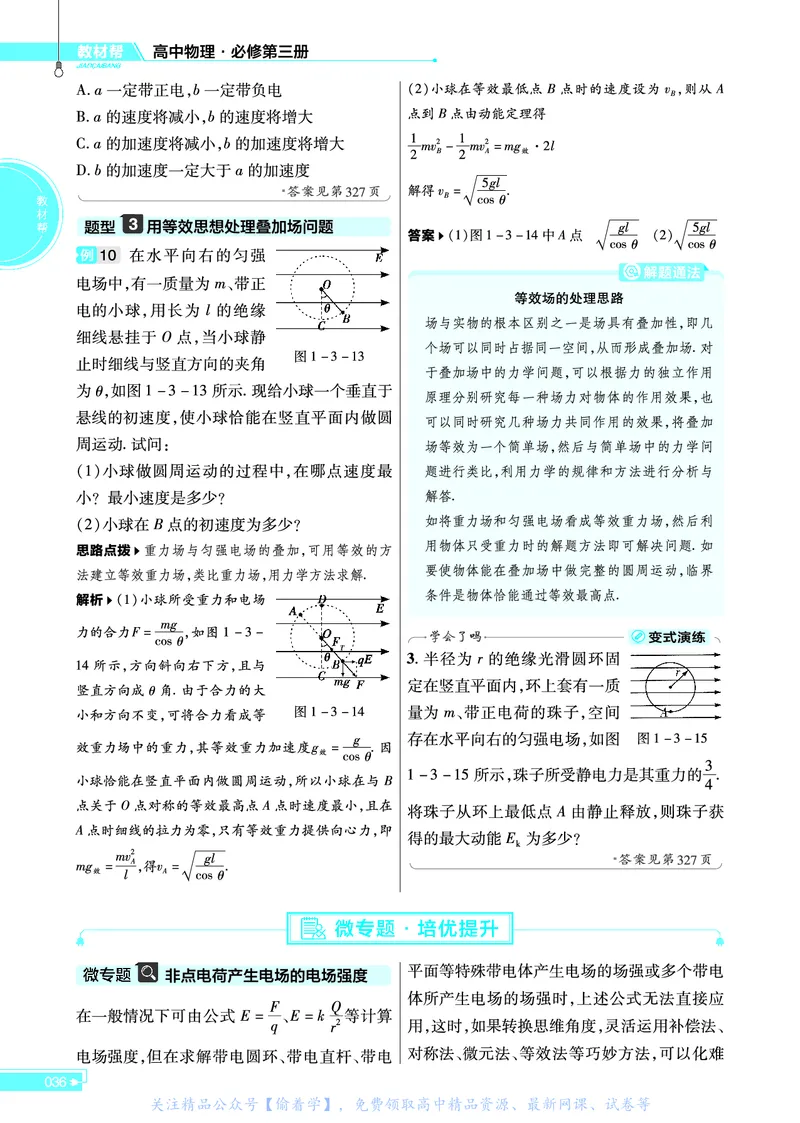 教材帮 高中物理·必修第三册
JIAOCAIBANG
教材帮
A. a 一定带正电,b 一定带负电
B. a 的速度将减小,b 的速度将增大
C. a 的加速度将减小,b 的加速度将增大
D. b 的加速度一定大于 a 的加速度
*答案见第327页
题型 3 用等效思想处理叠加场问题
例 10 在水平向右的匀强
电场中,有一质量为 m、带正
电的小球,用长为 l 的绝缘
细线悬挂于 O 点,当小球静
止时细线与竖直方向的夹角
E
O
θ
B
C
图1-3-13
为 θ,如图 1-3-13 所示. 现给小球一个垂直于
悬线的初速度,使小球恰能在竖直平面内做圆
周运动. 试问:
(1)小球做圆周运动的过程中,在哪点速度最
小? 最小速度是多少?
(2)小球在 B 点的初速度为多少?
思路点拨▶重力场与匀强电场的叠加,可用等效的方
法建立等效重力场,类比重力场,用力学方法求解.
解析▶(1)小球所受重力和电场
力的合力F=mg/cos θ,如图 1-3-
14 所示,方向斜向右下方,且与
竖直方向成 θ 角. 由于合力的大
小和方向不变,可将合力看成等
D
A
E
O
F_T
θ
B
qE
C
mg
F
图1-3-14
效重力场中的重力,其等效重力加速度g效=g/cos θ. 因
小球恰能在竖直平面内做圆周运动,所以小球在与 B
点关于 O 点对称的等效最高点 A 点时速度最小,且在
A 点时细线的拉力为零,只有等效重力提供向心力,即
mg效=mv_A²/l,得v_A=√(gl/cos θ).
(2)小球在等效最低点 B 点时的速度设为 v_B,则从 A
点到 B 点由动能定理得
1/2 mv_B²-1/2 mv_A²=mg效·2l
解得v_B=√(5gl/cos θ).
答案▶(1)图1-3-14中A点 √(gl/cos θ) (2)√(5gl/cos θ)
解题通法
等效场的处理思路
场与实物的根本区别之一是场具有叠加性,即几
个场可以同时占据同一空间,从而形成叠加场. 对
于叠加场中的力学问题,可以根据力的独立作用
原理分别研究每一种场力对物体的作用效果,也
可以同时研究几种场力共同作用的效果,将叠加
场等效为一个简单场,然后与简单场中的力学问
题进行类比,利用力学的规律和方法进行分析与
解答.
如将重力场和匀强电场看成等效重力场,然后利
用物体只受重力时的解题方法即可解决问题. 如
要使物体能在叠加场中做完整的圆周运动,临界
条件是物体恰能通过等效最高点.
学会了吗 变式演练
3. 半径为 r 的绝缘光滑圆环固
定在竖直平面内,环上套有一质
量为 m、带正电荷的珠子,空间
存在水平向右的匀强电场,如图
r
A
图1-3-15
1-3-15 所示,珠子所受静电力是其重力的3/4.
将珠子从环上最低点 A 由静止释放,则珠子获
得的最大动能 E_k 为多少?
*答案见第327页
微专题·培优提升
微专题 非点电荷产生电场的电场强度
在一般情况下可由公式 E=F/q、E=k Q/r²等计算
电场强度,但在求解带电圆环、带电直杆、带电
平面等特殊带电体产生电场的场强或多个带电
体所产生电场的场强时,上述公式无法直接应
用,这时,如果转换思维角度,灵活运用补偿法、
对称法、微元法、等效法等巧妙方法,可以化难
036
关注精品公众号【偷着学】，免费领取高中精品资源、最新网课、试卷等